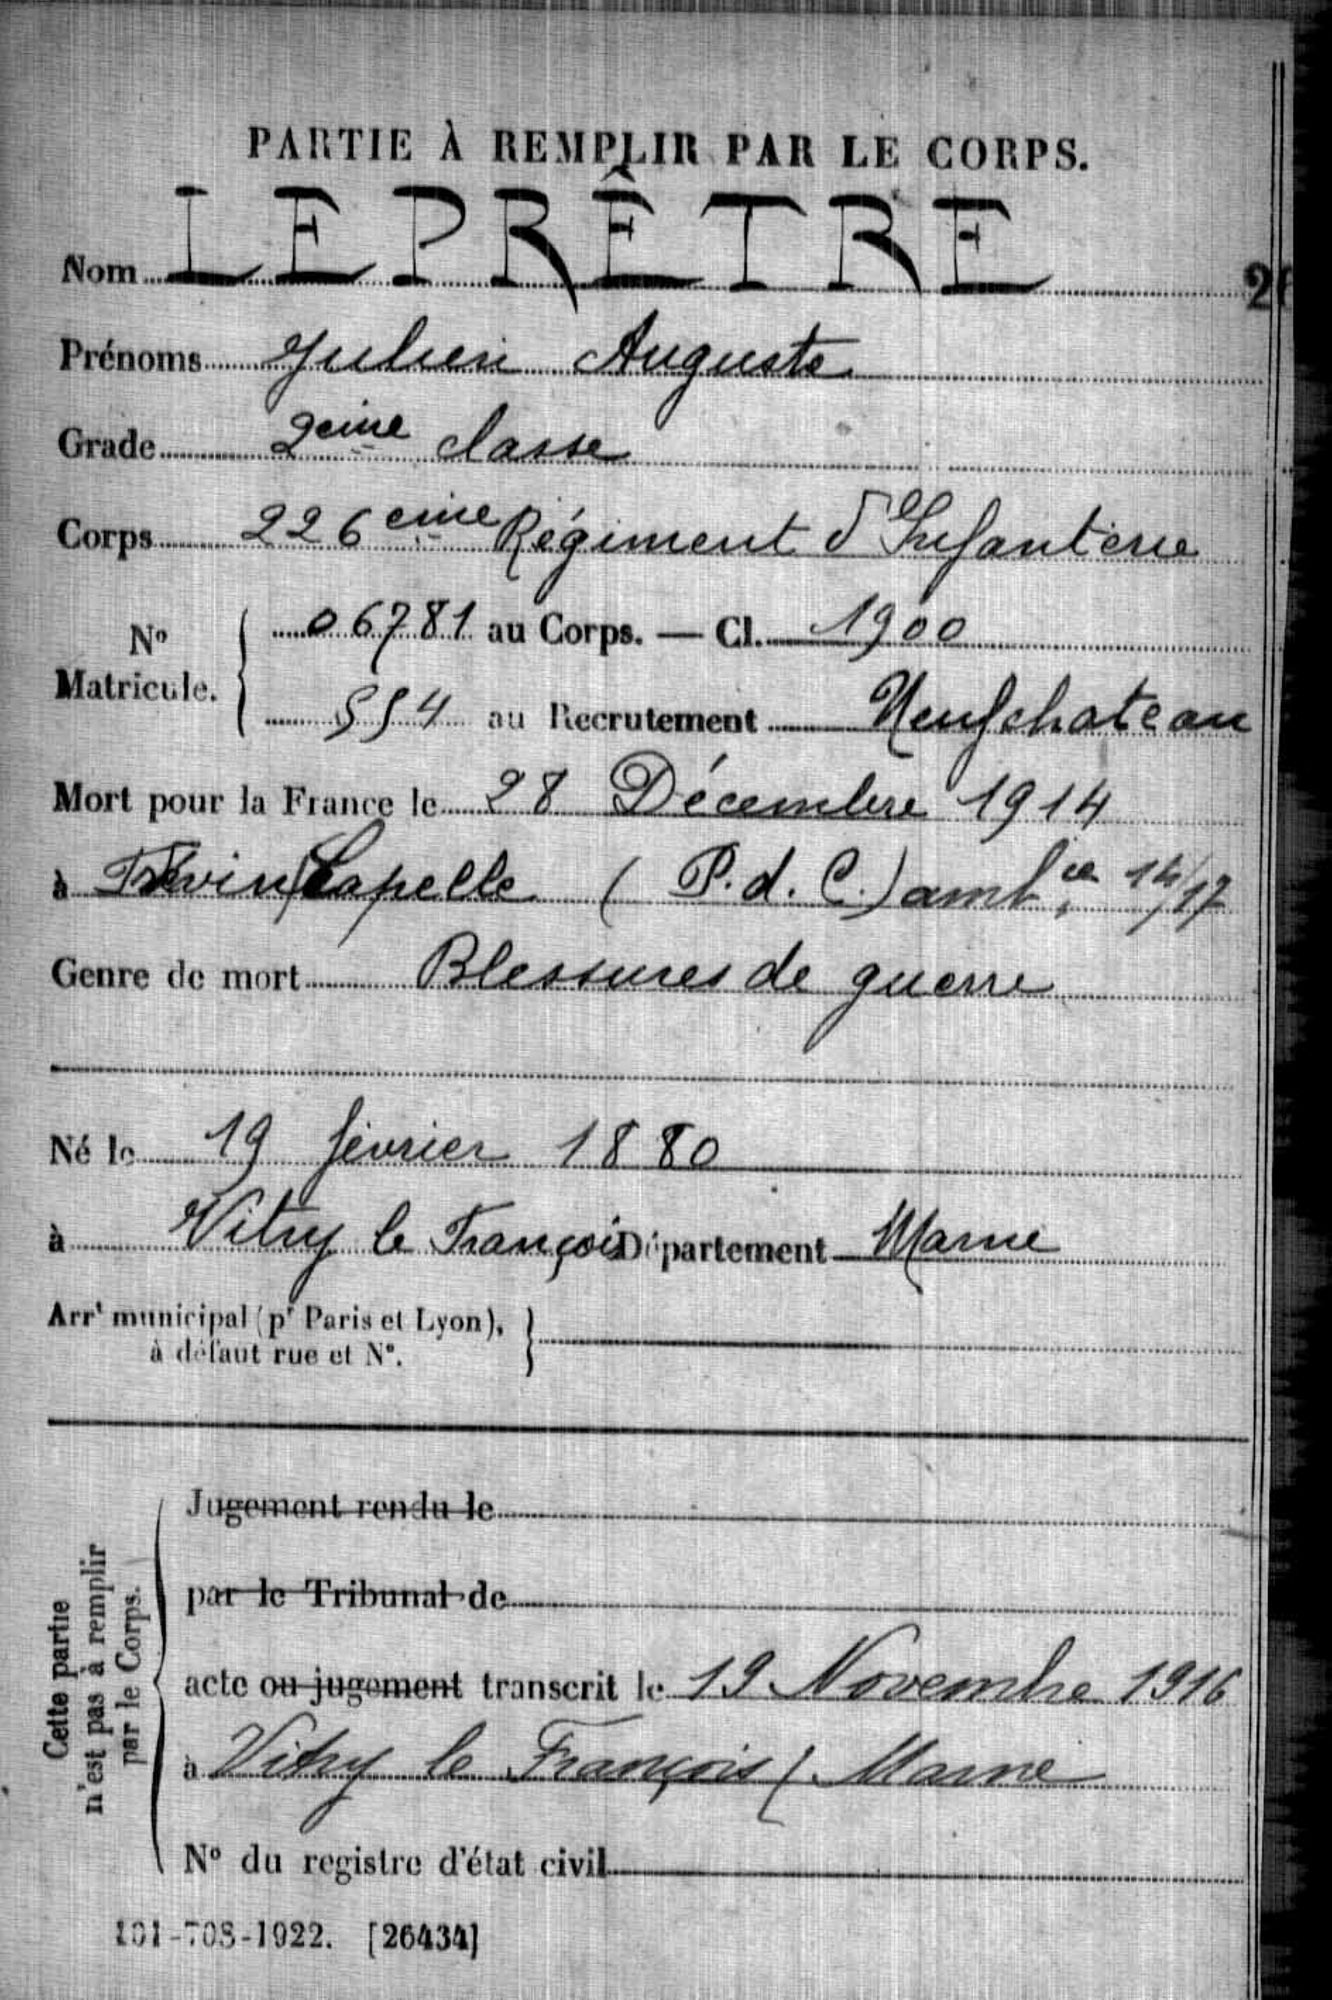 PARTIE À REMPLIR PAR LE CORPS.
Nom LEPRÊTRE
Prénoms Julien Auguste
Grade 2eme classe
Corps 226 eme Régiment d'Infanterie
No Matricule. 06781 au Corps. — Cl. 1900
554 au Recrutement Neufchateau
Mort pour la France le 28 Décembre 1914
à Capelle (P.d.C.) ambce 14/17
Genre de mort Blessures de guerre
Né le 19 février 1880
à Vitry le François Département Marne
Arrt municipal (pr Paris et Lyon),
à défaut rue et No.
Cette partie
n'est pas à remplir
par le Corps.
Jugement rendu le
par le Tribunal de
acte ou jugement transcrit le 19 Novembre 1916
à Vitry le François (Marne
No du registre d'état civil
101-708-1922. [26434]